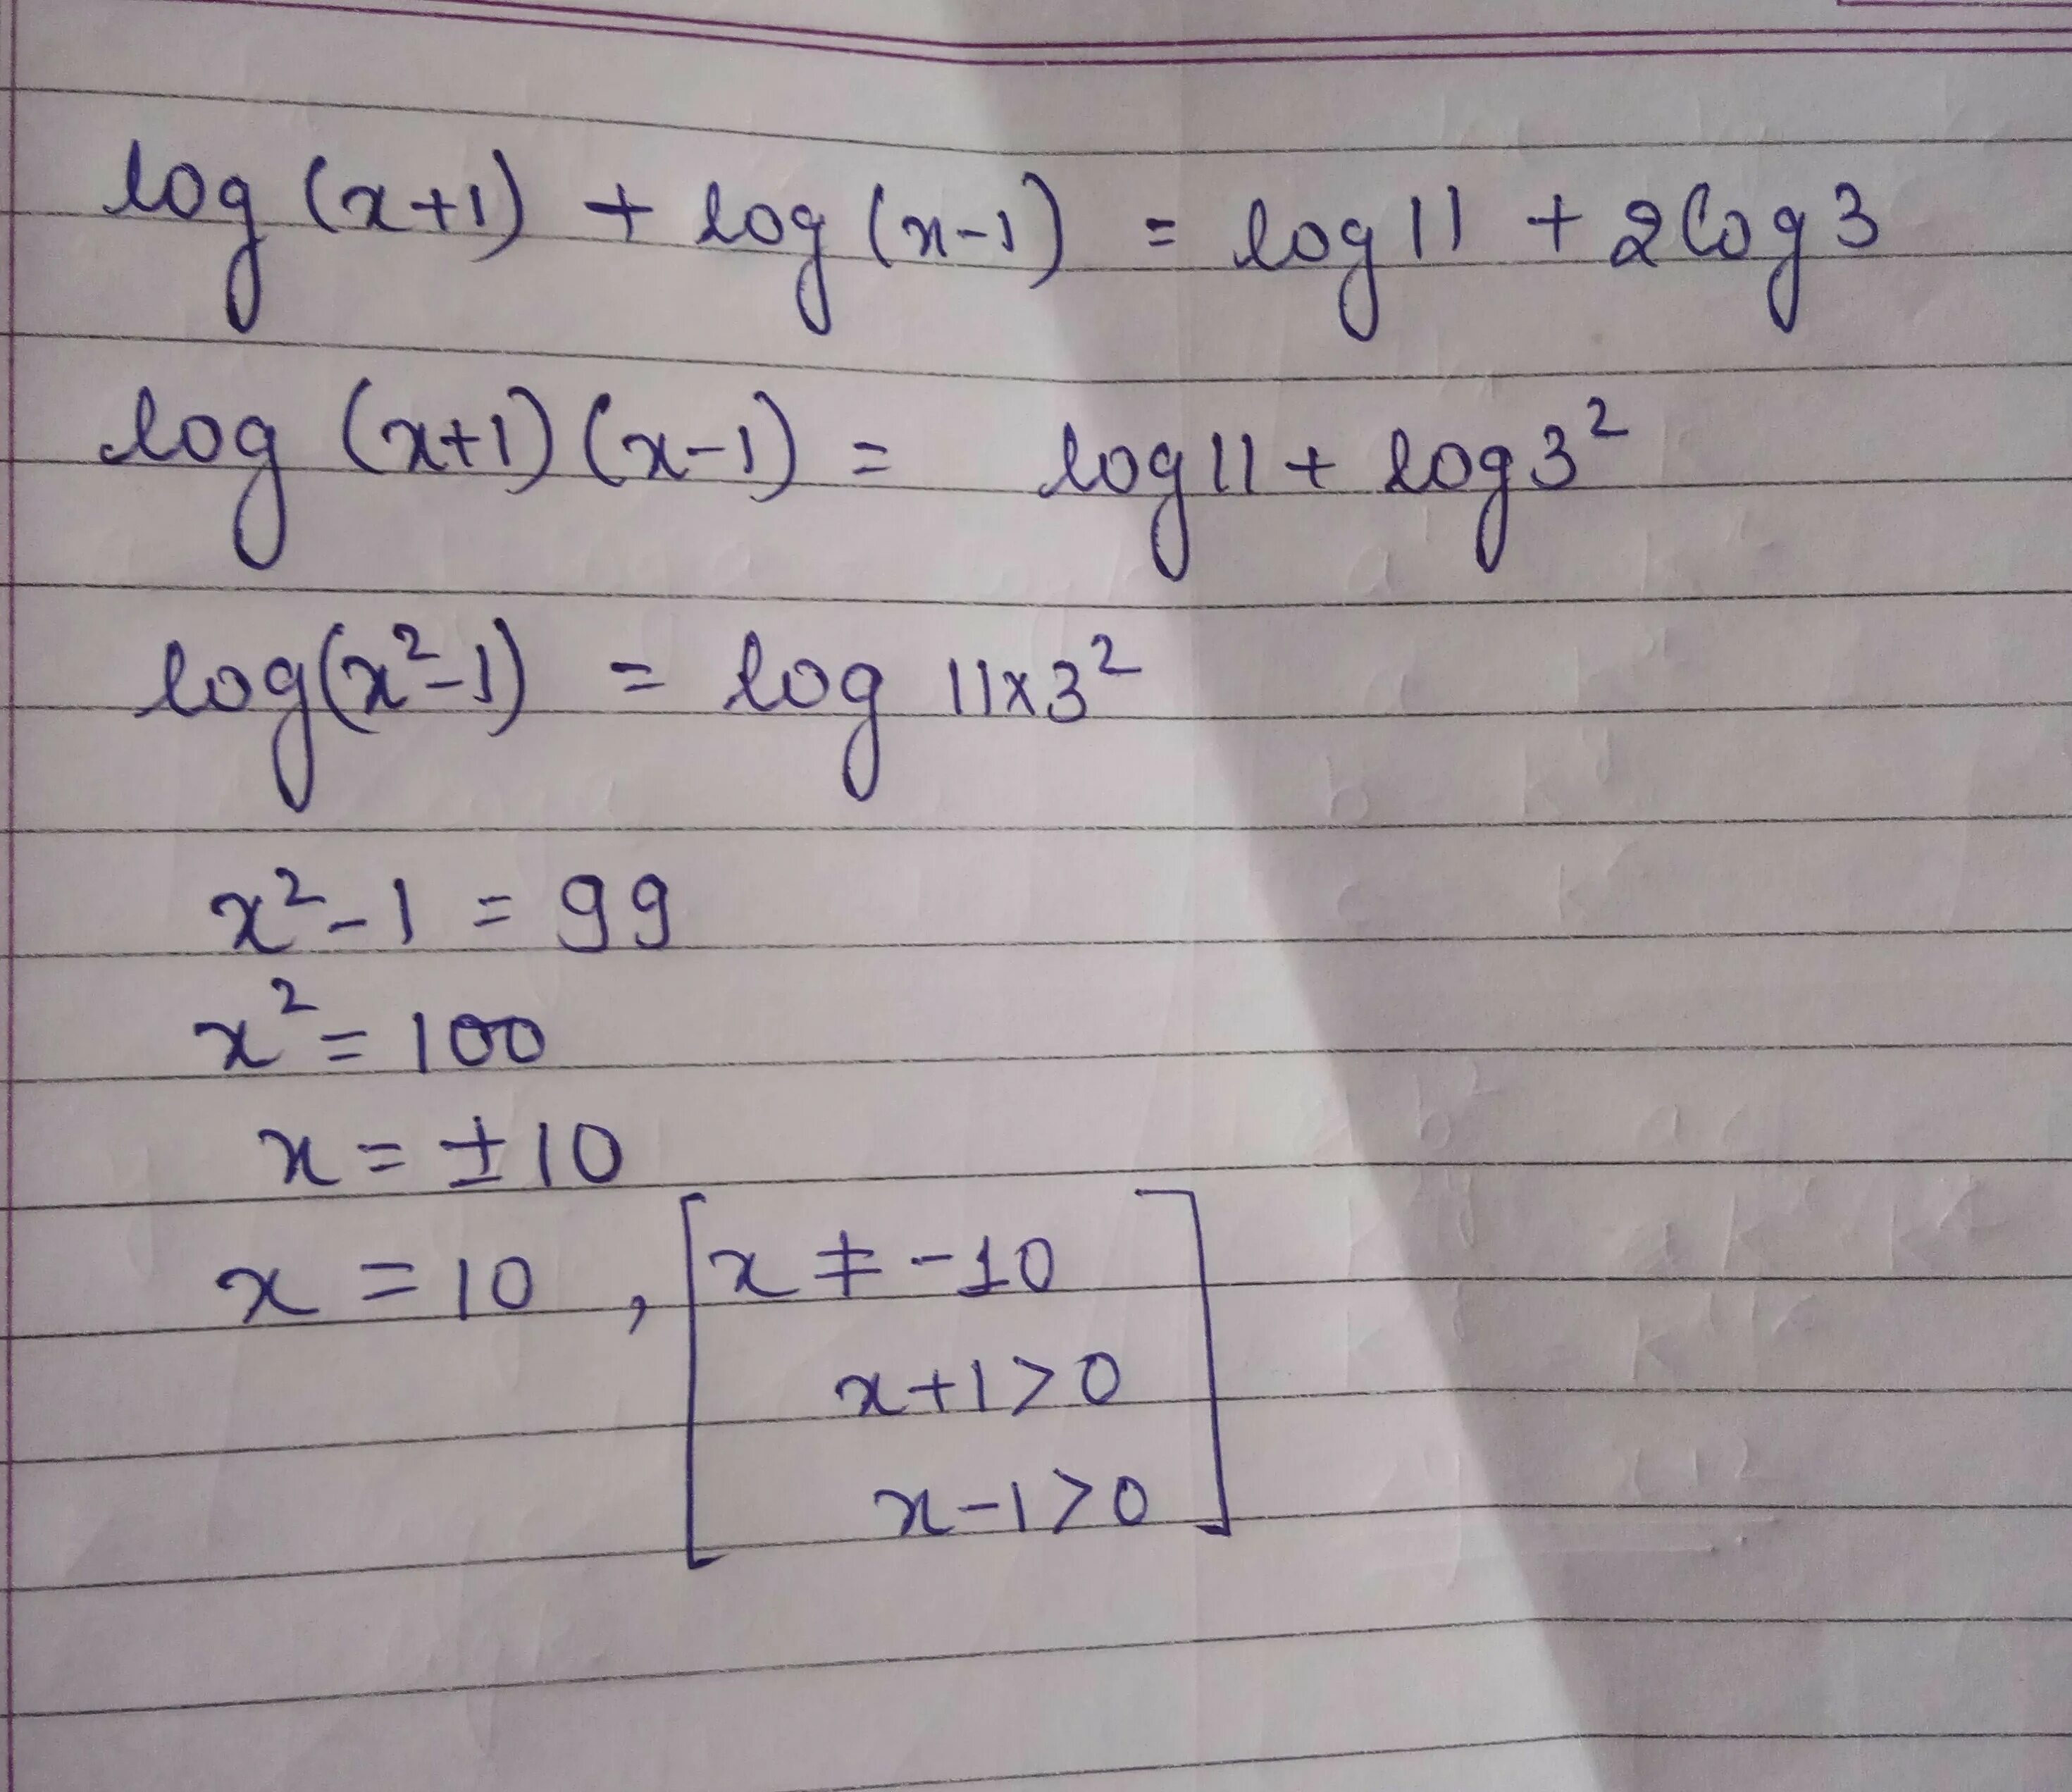 log (x+1) + log (x-1) = log 11 + 2 log 3
log (x+1) (x-1) = log 11 + log 3²
log(x²-1) = log 11x3²
x²-1 = 99
x² = 100
x = ±10
x = 10 , [x ≠ -10
x+1>0
x-1>0]